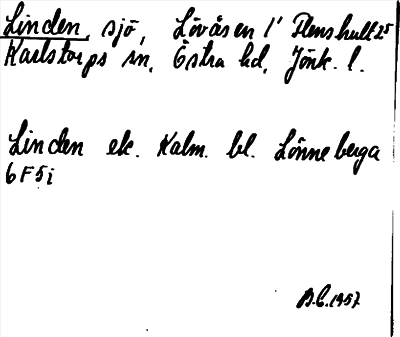 Linden, sjö, Lövåsen 1' Flenshult 25
Karlstorps sn, Östra hd, Jönk. l.
Linden ek. Kalm. bl. Lönneberga
6F5i
B.C. 1957